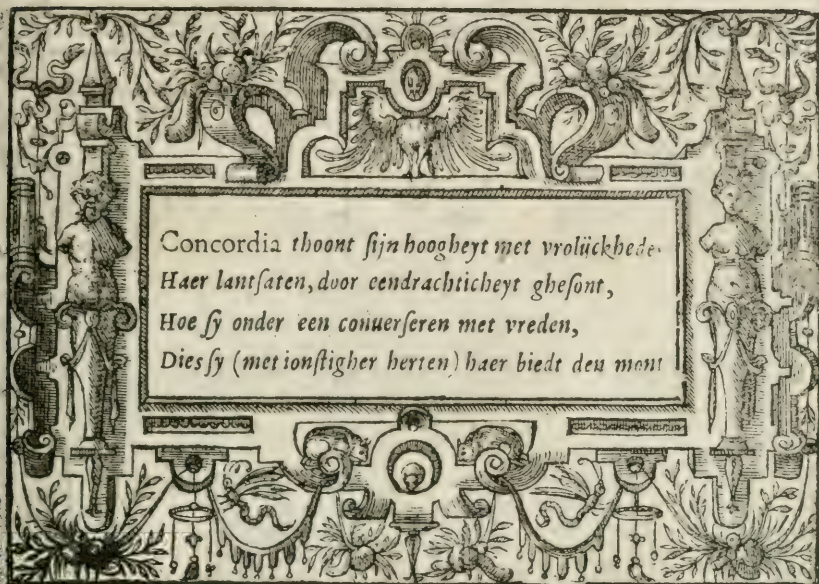 Concordia thoont ſijn hoogheyt met vrolijckhede
Haer lantſaten, door eendrachticheyt gheſont,
Hoe ſy onder een conuerſeren met vreden,
Dies ſy (met ionſtigher herten) haer biedt den mont